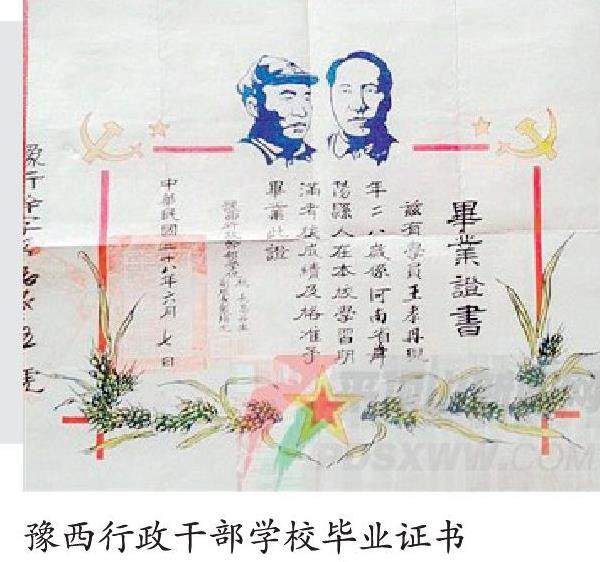 畢業證書
茲有學員王孝再現
年二八歲係河南省舞
陽縣人在本校學習期
滿考核成績及格准予
畢業此證
中華民國三十八年六月七日
PDSXWW.COM
豫西行政干部学校毕业证书